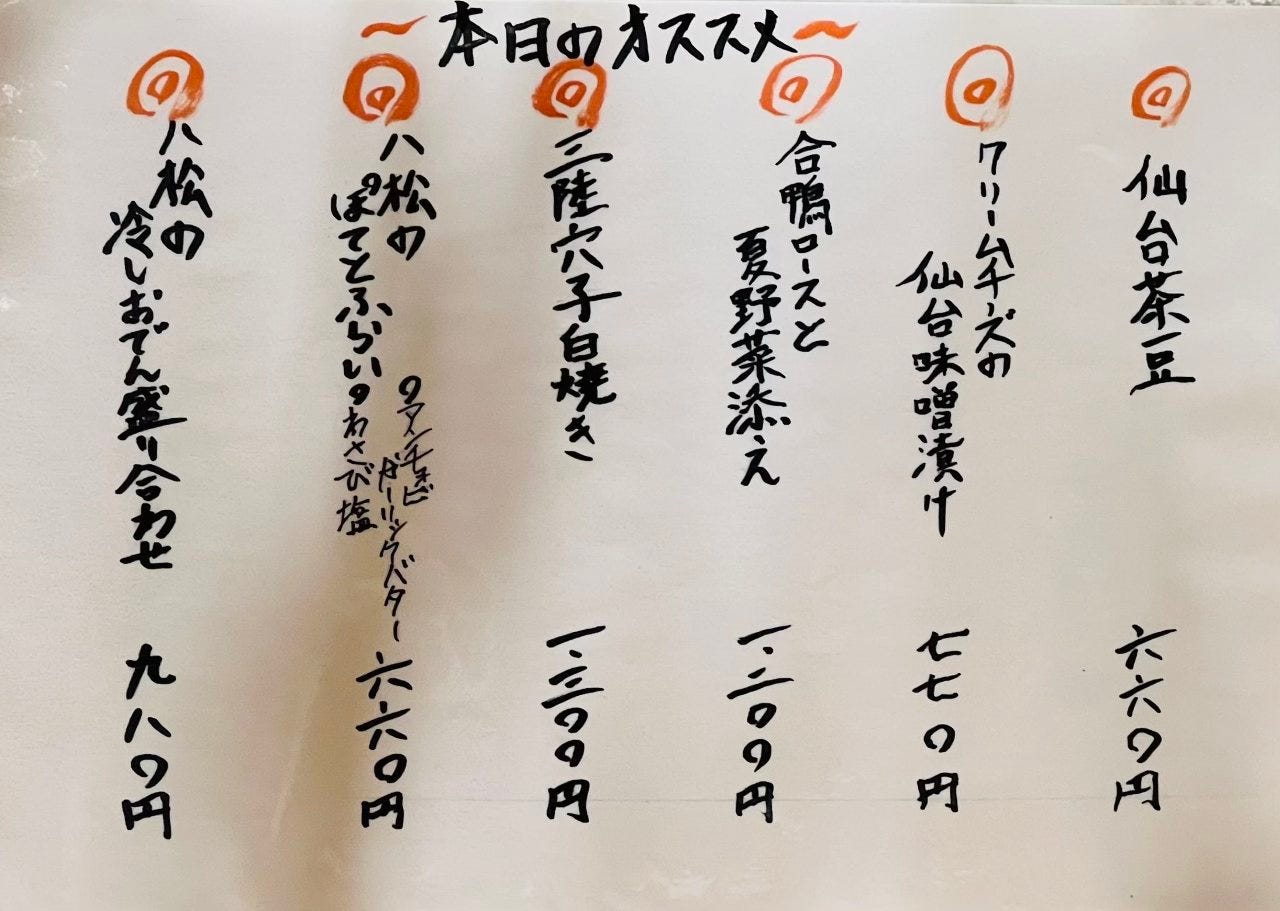 ~本日のオススメ~
仙台茶豆
六六〇円
クリームチーズの
仙台味噌漬け
七七〇円
合鴨ロースと
夏野菜添え
一.二〇〇円
三陸穴子白焼き
一.三〇〇円
八松の
ぽてとふらい
・アンチョビ
ガーリックバター
・わさび塩
六六〇円
八松の
冷しおでん盛り合わせ
九八〇円